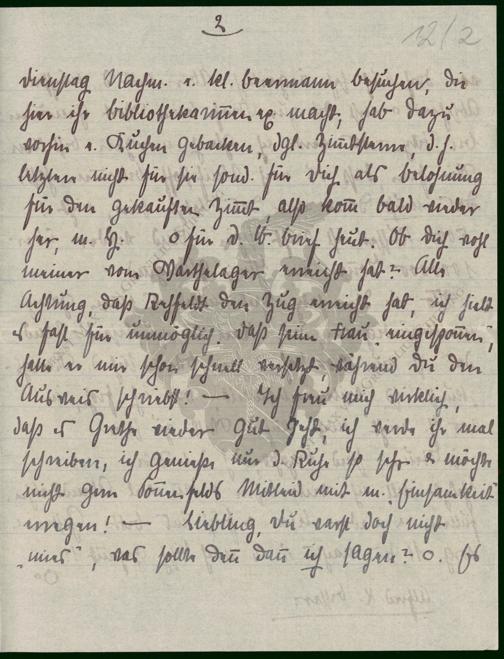 2
12/2
dienstag Nachm. e. kl. beermann besuchen, die
hier ihr bibliothekarinnenex. macht, hab dazu
vorhin e. Kuchen gebacken, dgl. Zimtsterne, d. h.
letztere nicht für sie sond. für dich als belohnung
für den gekauften Zimt, also kom bald wieder
her, m. H. o für d. lb. brief heut. Ob dich wohl
meiner vom Warthelager erreicht hat? Alle
Achtung, daß Rehfeldt den Zug erreicht hat, ich hielt
es fast für unmöglich. daß seine Frau eingesponn̄,
hatte er mir schon schnell versetzt, während du den
Ausweis schriebst! — Ich freu mich wirklich,
daß es Grethe wieder gut geht, ich werde ihr mal
schreiben, ich genieße nur d. Ruhe so sehr & möchte
nicht gern Sonnenfelds Mitleid mit m. Einsamkeit
erregen! — Liebling, du warst doch nicht
„mies", was sollte denn dann ich sagen? o. Es